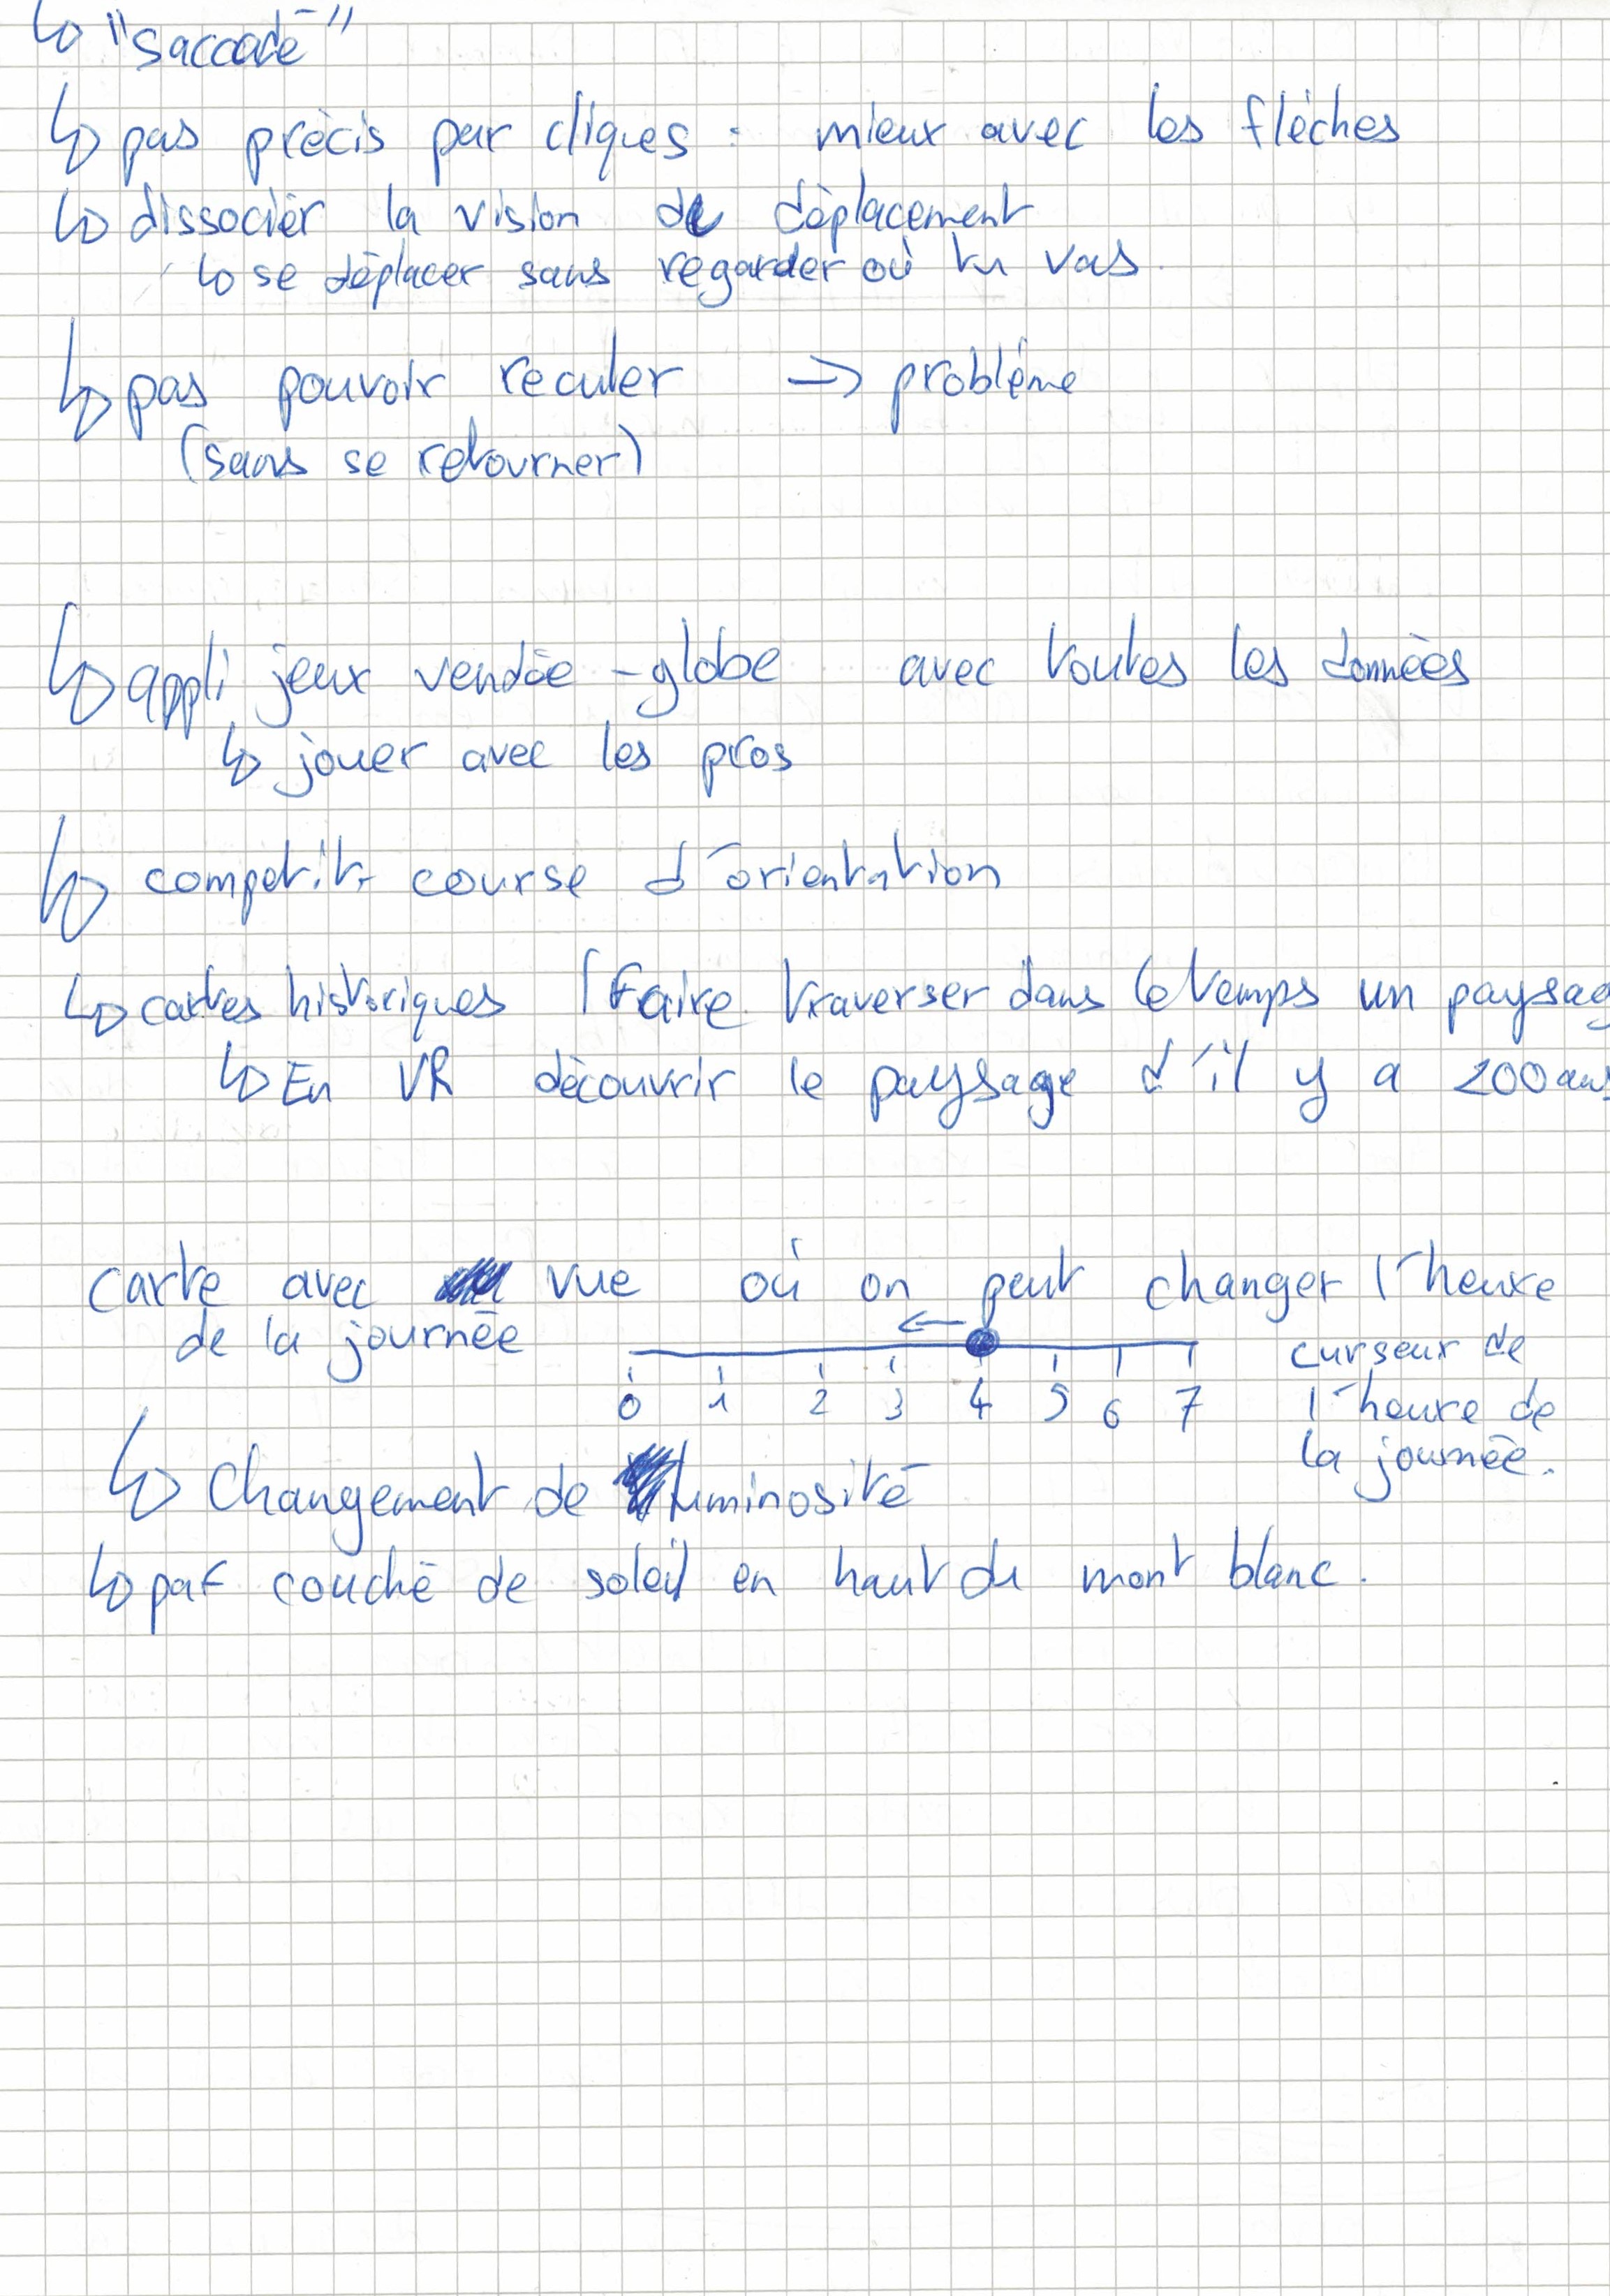 ↳ "saccadé"
↳ pas précis par cliques : mieux avec les flèches
↳ dissociér la vision de déplacement
↳ se déplacer sans regarder où tu vas.
↳ pas pouvoir reculer => problème
(sans se retourner)
↳ appli jeux vendée-globe avec toutes les données
↳ jouer avec les pros
↳ course d'orientation
↳ cartes historiques (Faire traverser dans le temps un paysag
↳ En VR découvrir le paysage d'il y a 200 ans
carte avec vue où on peut changer l'heure
de la journée
←
0 1 2 3 4 5 6 7
curseur de
l'heure de
la journée.
↳ Changement de luminosité
↳ couché de soleil en haut du mont blanc.